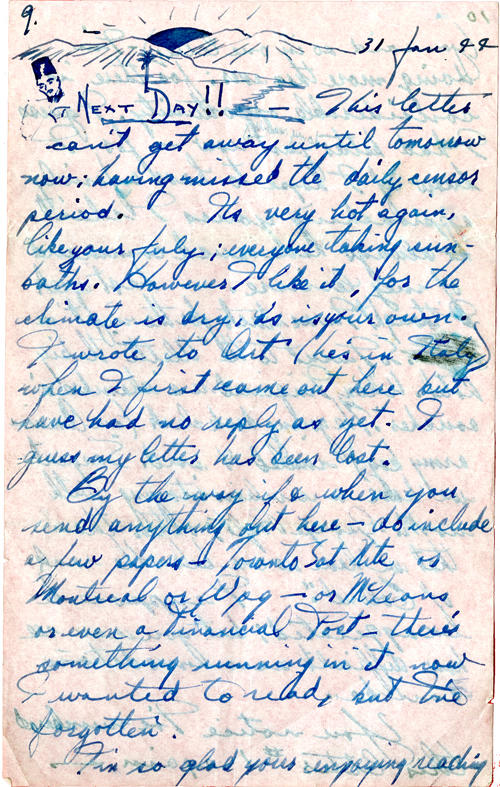 9.
31 Jan 44
NEXT DAY!! — This letter
can't get away until tomorrow
now; having missed the daily censor
period. Its very hot again,
like your July; everyone taking sun-
baths. However I like it, for the
climate is dry, as is your own.
I wrote to Art (he's in Italy)
when I first came out here but
have had no reply as yet. I
guess my letter has been lost.
By the way if & when you
send anything out here — do include
a few papers — Toronto Sat Nite or
Montreal or Wpg — or McLeans
or even a Financial Post — there's
something running in it now
I wanted to read, but I've
forgotten.
I'm so glad your enjoying reading